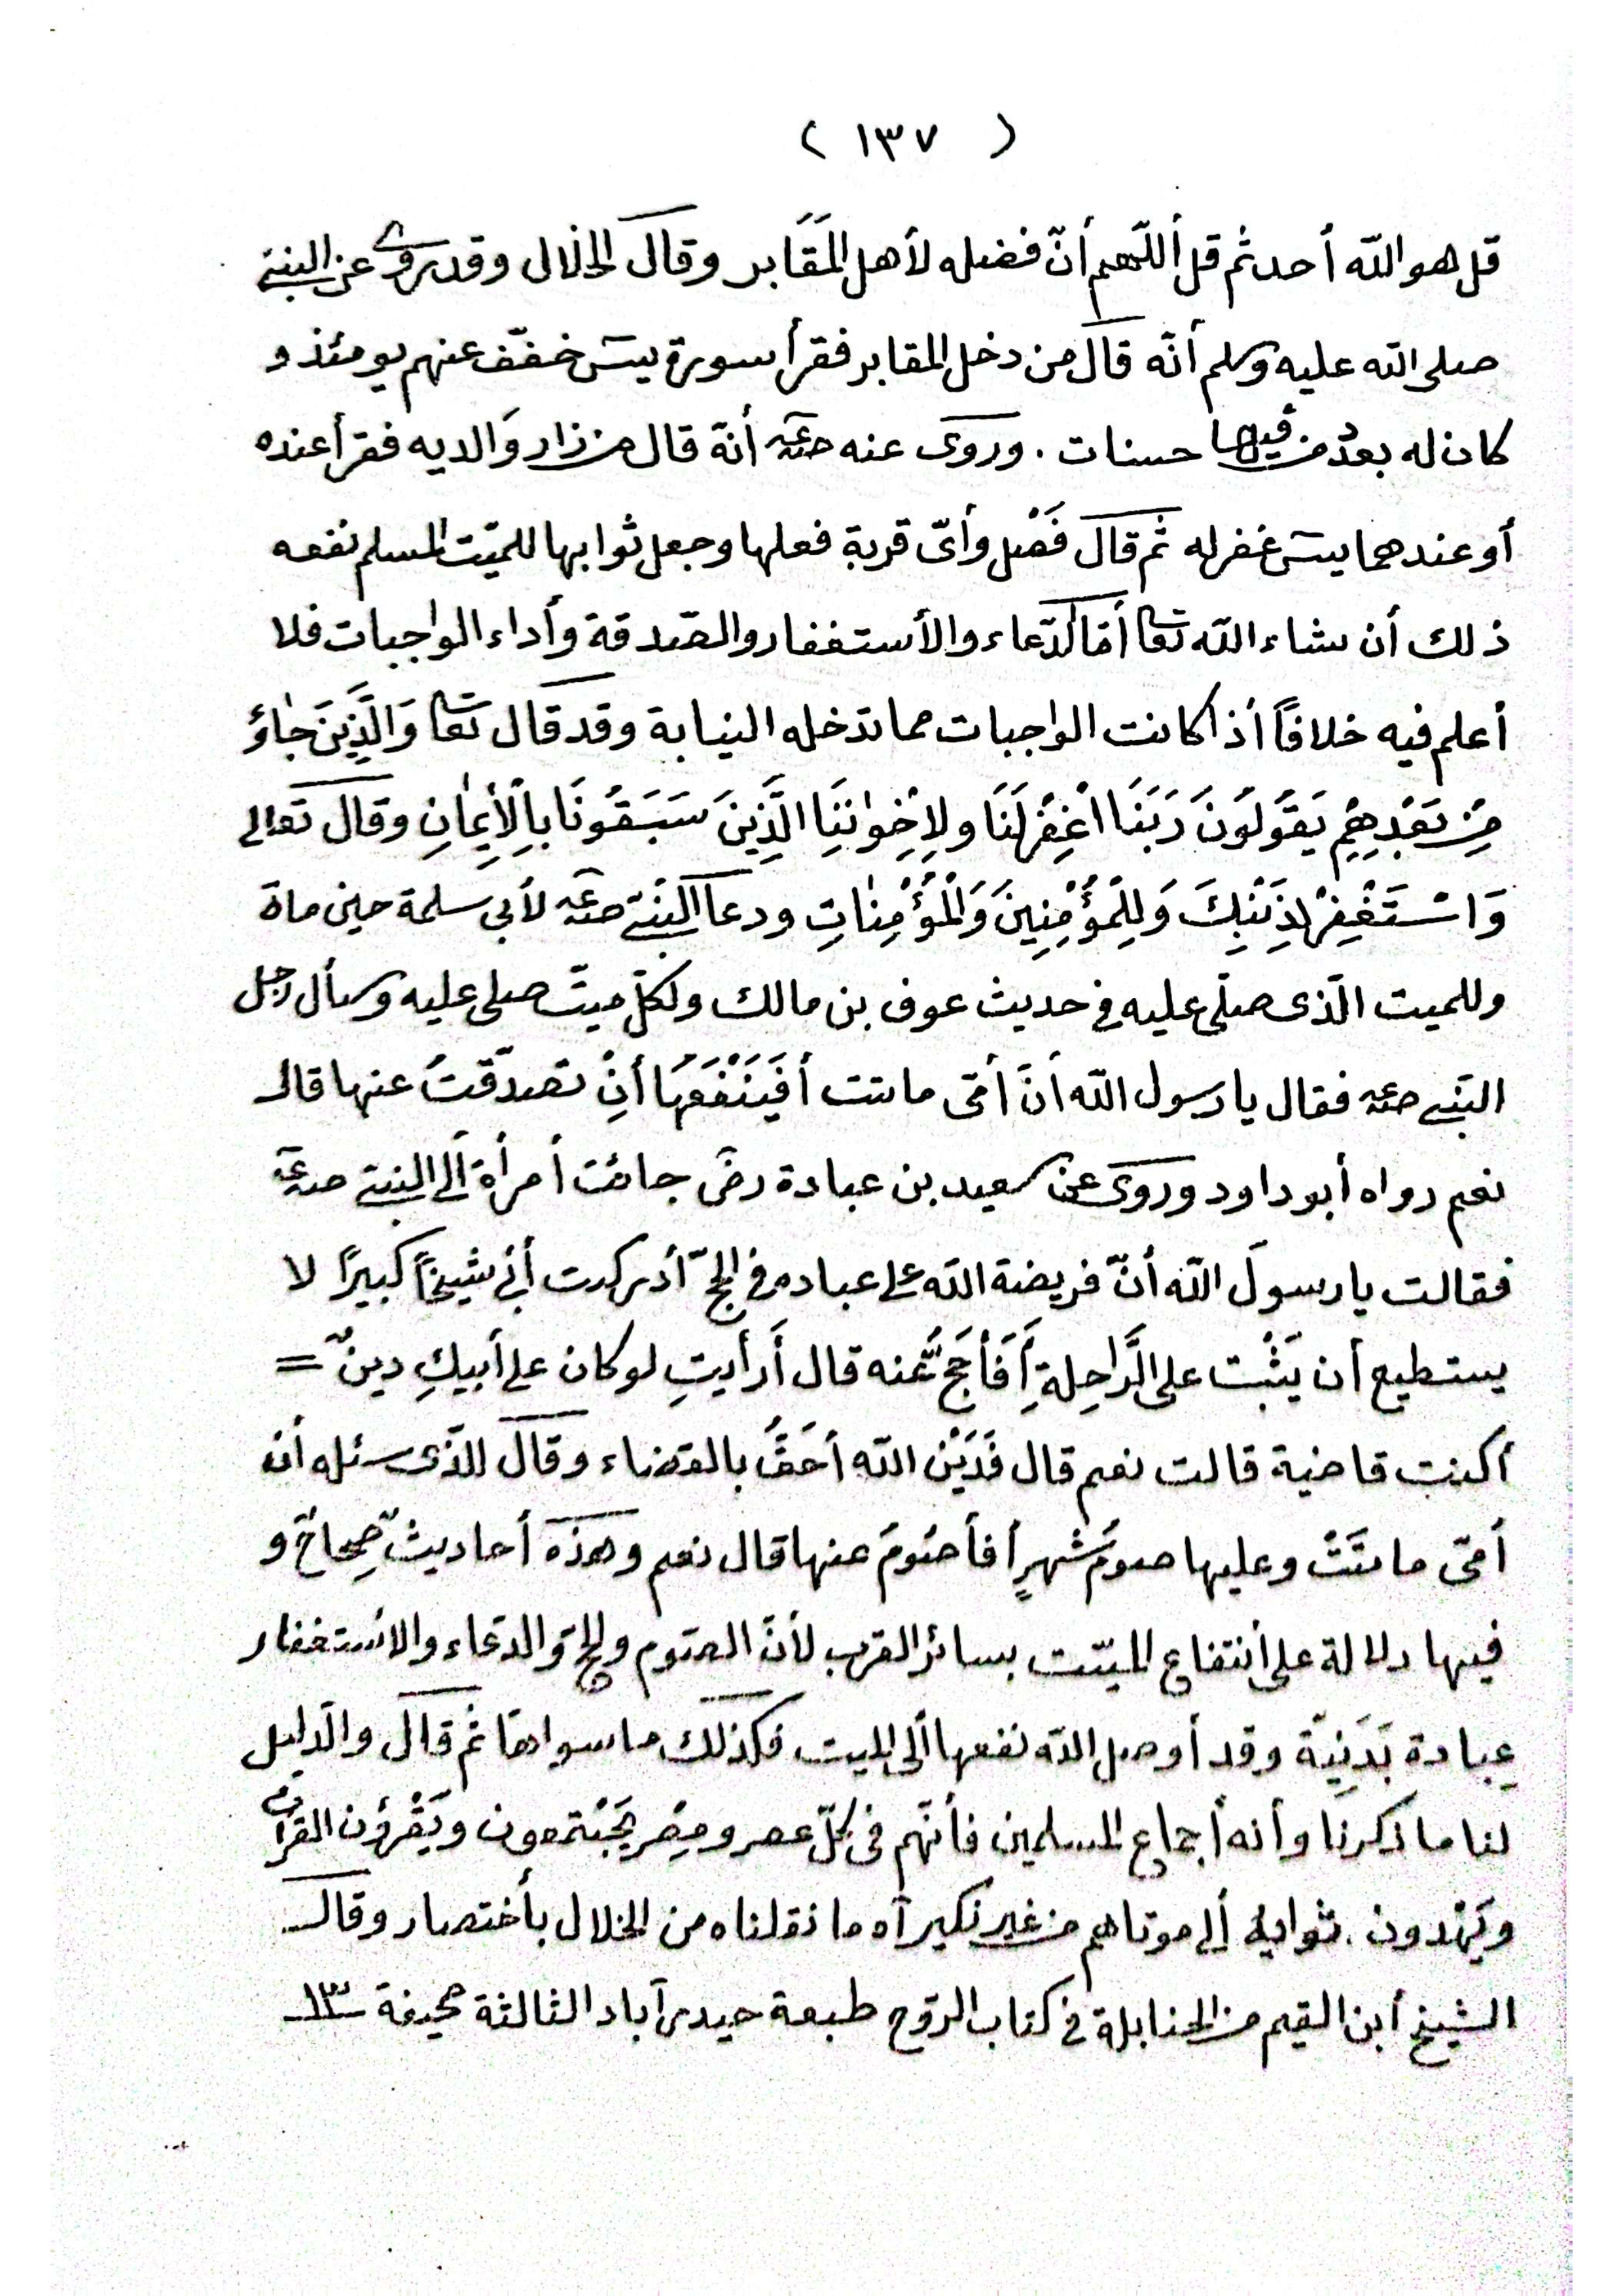 ( ١٣٧ )
قل هو الله أحد ثم قل أللّهم أنّ فضله لأهل المَقَابر وقال الخلال وقد روى عن النبي
صلى الله عليه وسلم أنّه قال من دخل المقابر فقرأ سورة يسَ خفّف عنهم يومئذ و
كان له بعدد من فيها حسنات . وروى عنه صلعم أنّه قال من زار والديه فقرأ عنده
أو عندهما يسَ غفر له ثم قال فَصْل وأىّ قربة فعلها وجعل ثوابها للميّت المسلم نفعه
ذلك أن شاء الله تعا أمّا الدّعاء والأستغفار والصّدقة وأداء الواجبات فلا
أعلم فيه خلافاً أذا كانت الواجبات مما تدخله النيابة وقد قال تعا وَالَّذِينَ جٰاؤ
مِنْ بَعْدِهِمْ يَقُولُونَ رَبَنَا اغْفِرْ لَنَا ولِإخْوٰانِنَا الَّذِينَ سَبَقُونَا بِالْأِيمٰانِ وقال تعالى
وَاسْتَغْفِرْ لِذَنْبِكَ وَلِلْمؤُمِنِينَ وَالْمُؤْمِنٰاتِ ودعا النبي صلعم لأبى سلمة حين ماة
وللميت الّذى صلّى عليه فى حديث عوف بن مالك ولكلّ ميتّ صلى عليه وسأل رجل
النبى صلعم فقال يا رسول الله أنَّ أمّى ماتت أفَيَنْفَعُهَا أنِْ تصدّقتُ عنها قال
نعم رواه أبو داود وروى عن سعيد بن عبادة رضَى جائت أمرأة ألى النبي صلعم
فقالت يا رسولَ الله أنّ فريضة الله على عباده فى الحجّ أدركت أبى شيخاً كبيرًا لا
يستطيع أن يَثْبُت على الرَّاحِلةِ أَفَأَحَجُّ عنه قال أَرأيتِ لو كان على أبيكِ دينٌ =
أكنت قاضية قالت نعم قال فَدَيْن الله أحَقُّ بالقضاء وقال للّذى سئله أن
أمّى ماتَتْ وعليها صومُ شهرٍ أفأصُومُ عنها قال نعم وهذه أحاديثٌ صِحاحٌ و
فيها دلالة على أنتفاع الميّت بسائر القرب لأنّ الصّوم والحجّ والدعاء والاستغفار
عِبادة بَدَنِيّة وقد أوصل الله نفعها ألى الميت فكذلك ما سواها ثم قال والدليل
لنا ما ذكرنا وأنه أجماع المسلمين فأنّهم فى كلّ عصر ومِصْر يَجْتمعون ويَقْرؤن القرآن
ويَهْدون . ثوابه ألى موتاهم من غير نكير آه ما نقلناه من الخلال بأختصار وقال
الشيخ أبن القيم من الحنابلة فى كتاب الرّوح طبعة حيدرآباد الثالثة صحيفة